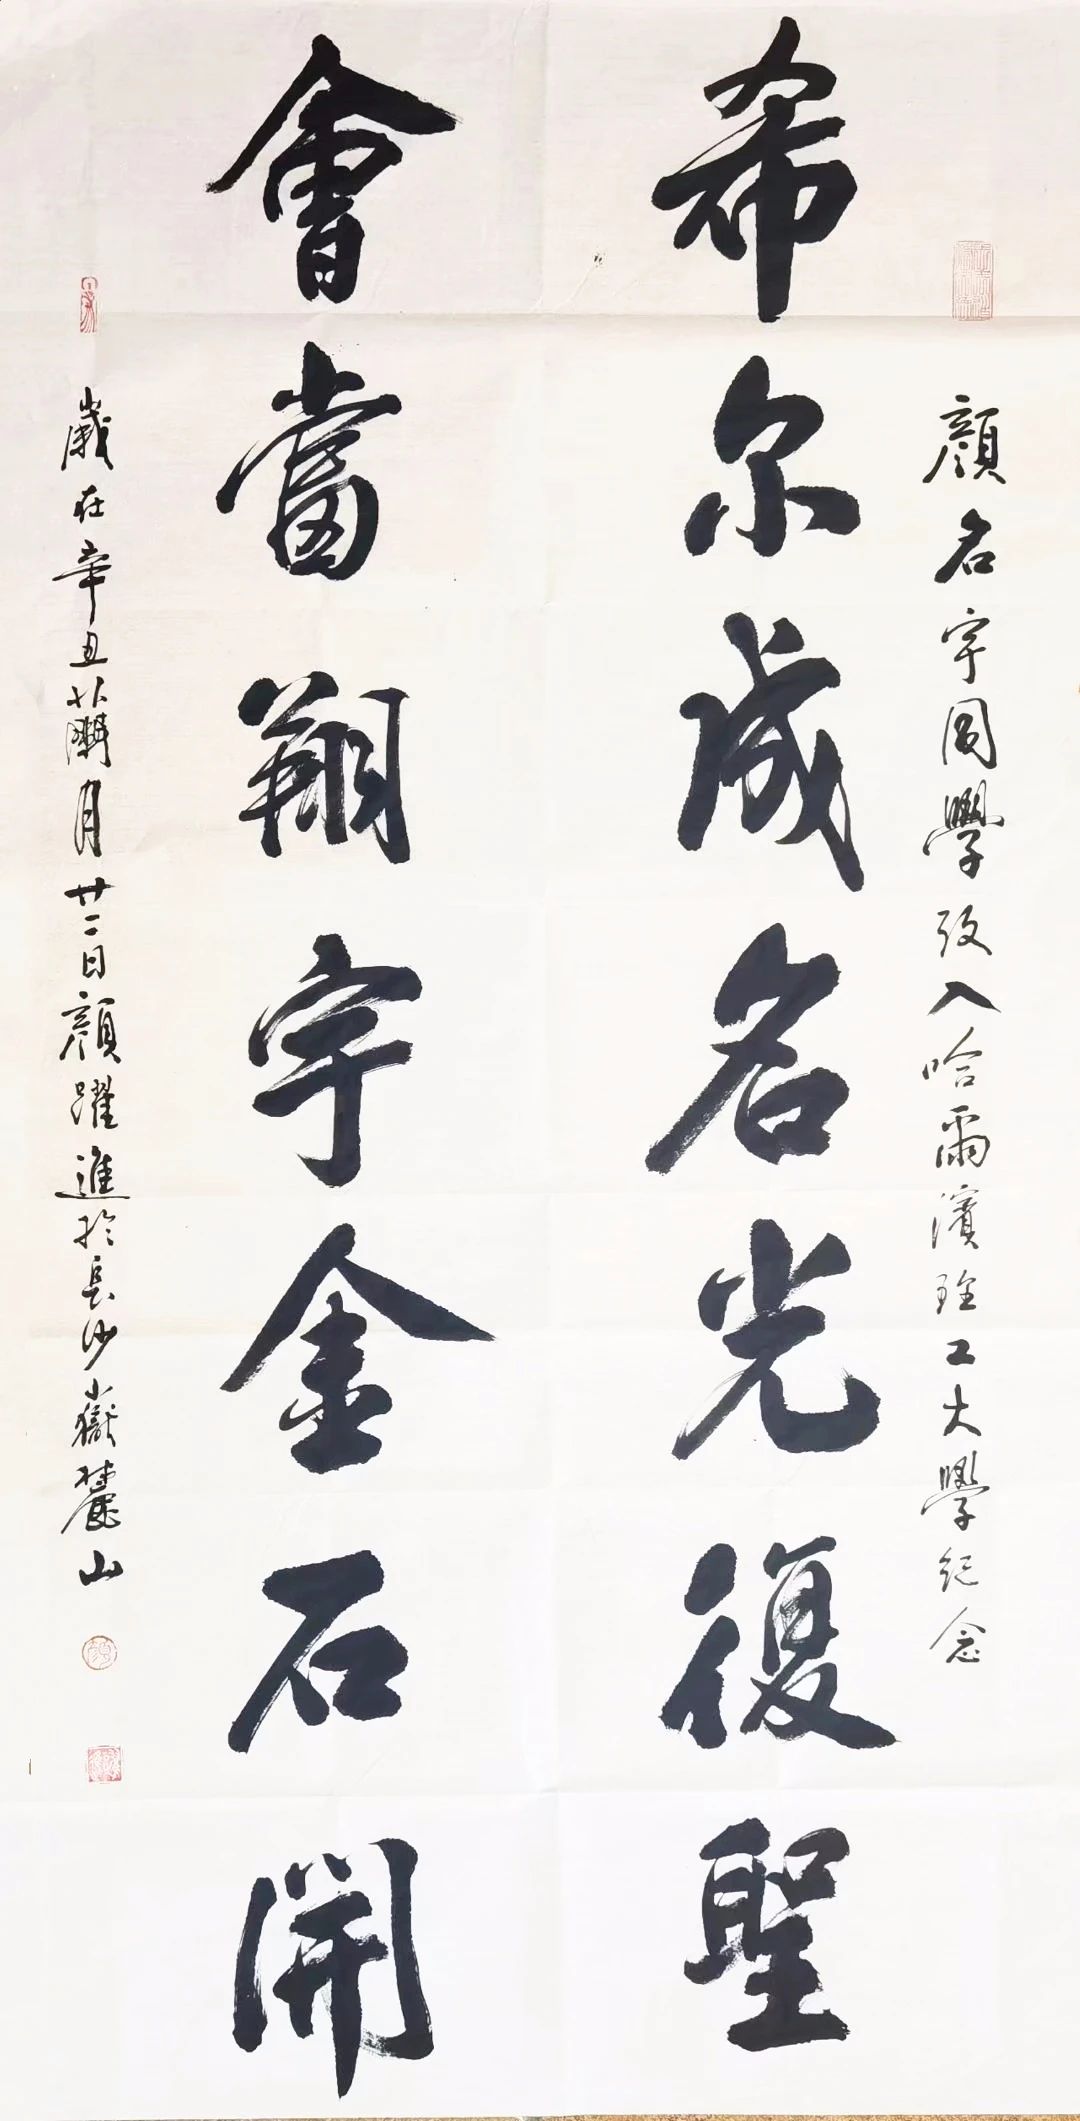 顔名宇同學攷入哈爾濱理工大學紀念
希尔成名光復聖
會當翔宇金石開
歲在辛丑蘭月廿二日顔躍進於長沙嶽麓山